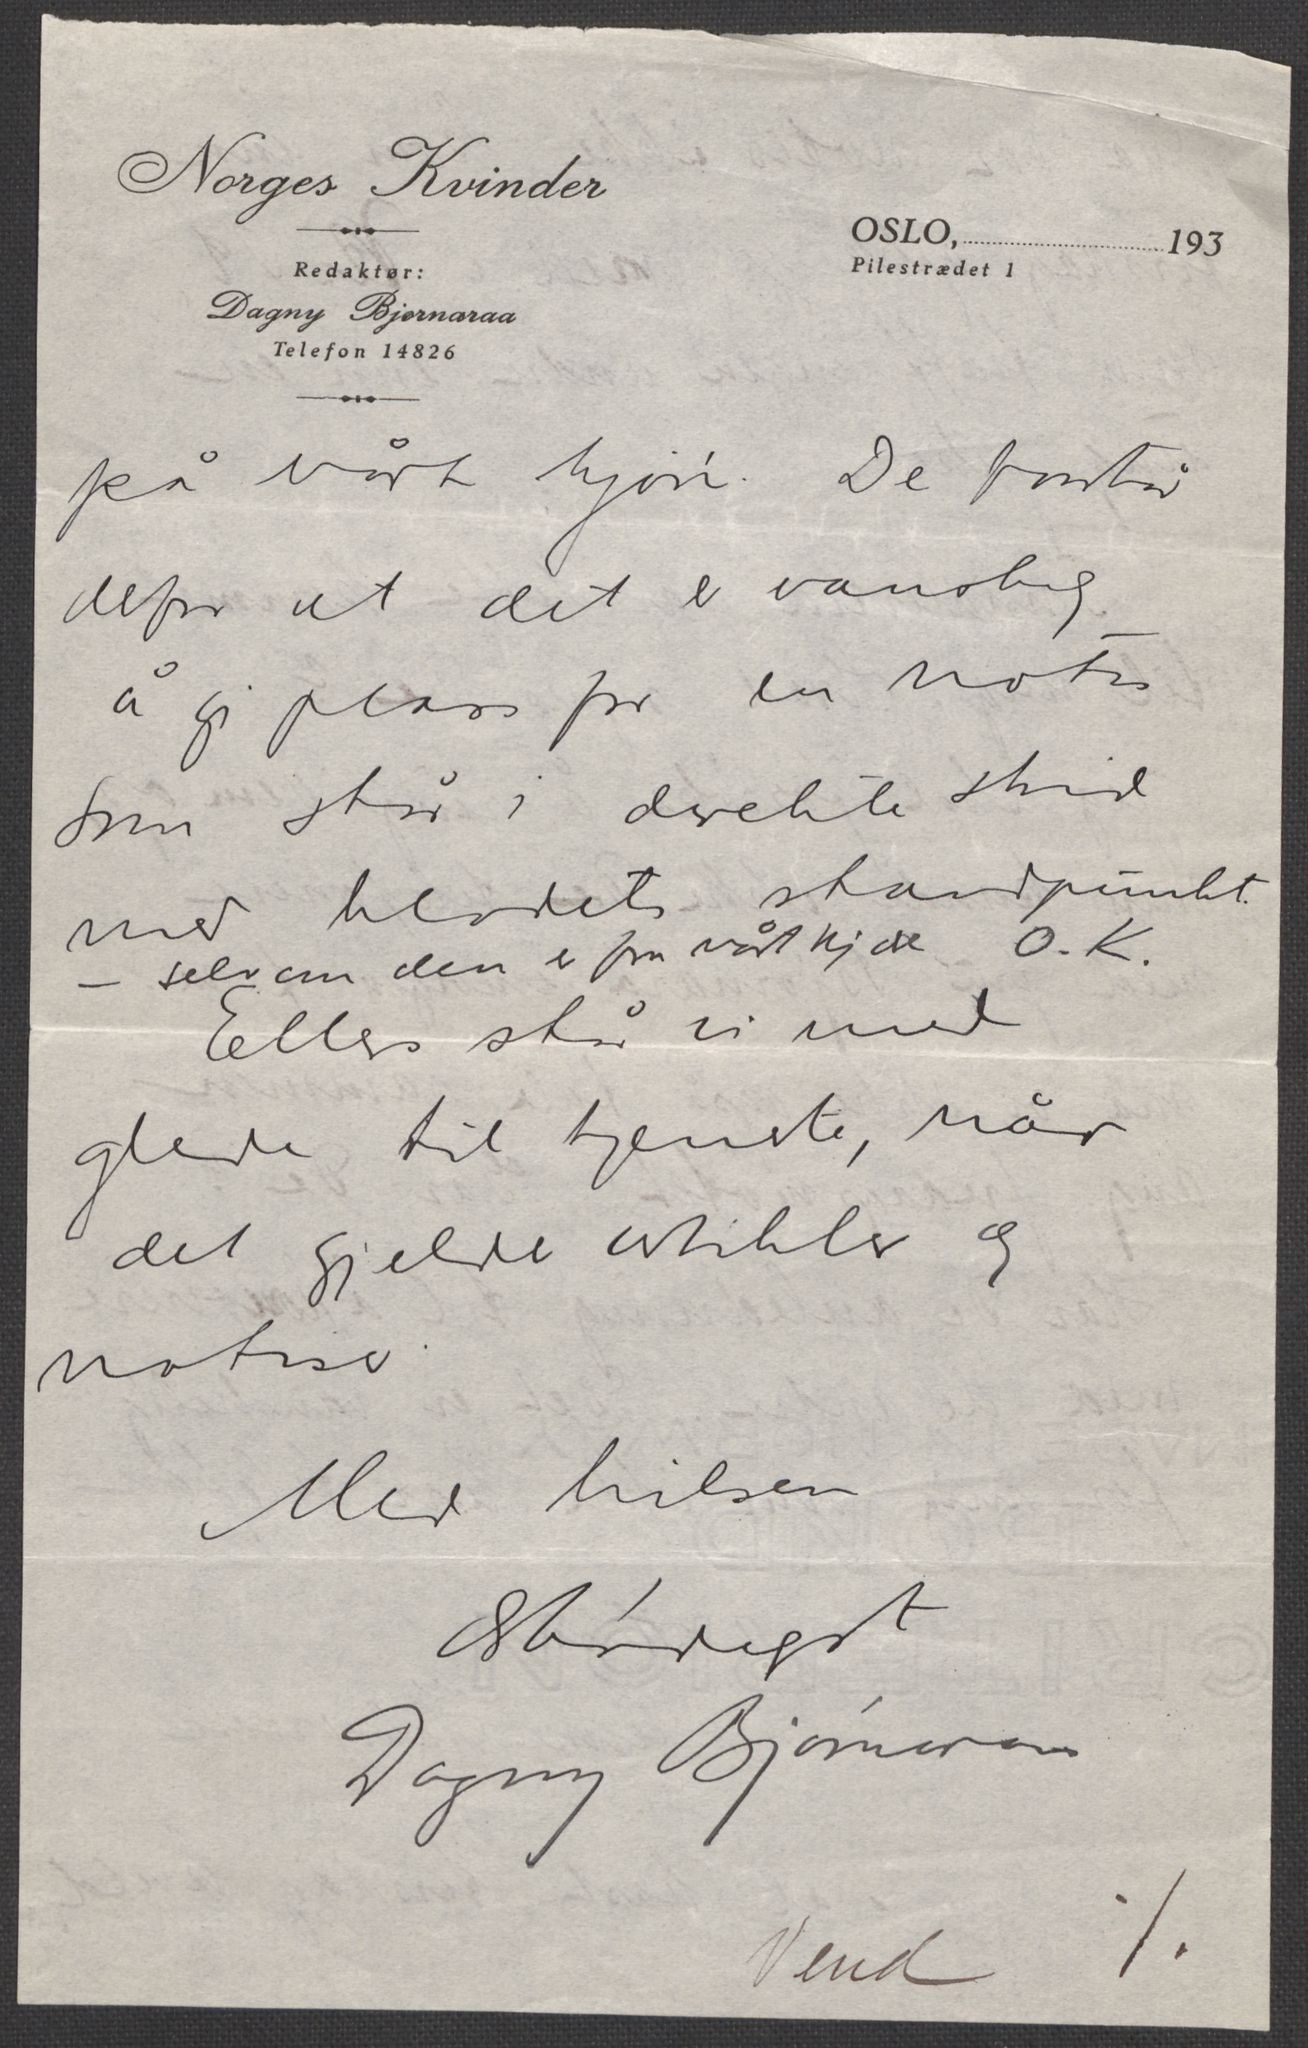 Norges Kvinder
OSLO, 193
Pilestrædet 1
Redaktør:
Dagny Bjørnaraa
Telefon 14826
på vårt hjøri. De forstår
defor at det er vanskelig
å gi plass for en notis
som står i derekte strid
med bladets standpunkt.
– selv om den er fra vårt hjøre O.K.
Ellers står vi med
glede til tjeneste, når
det gjelder artikler og
notiser.
Med hilsen
ærbødigst
Dagny Bjørnaraa
Vend ./.